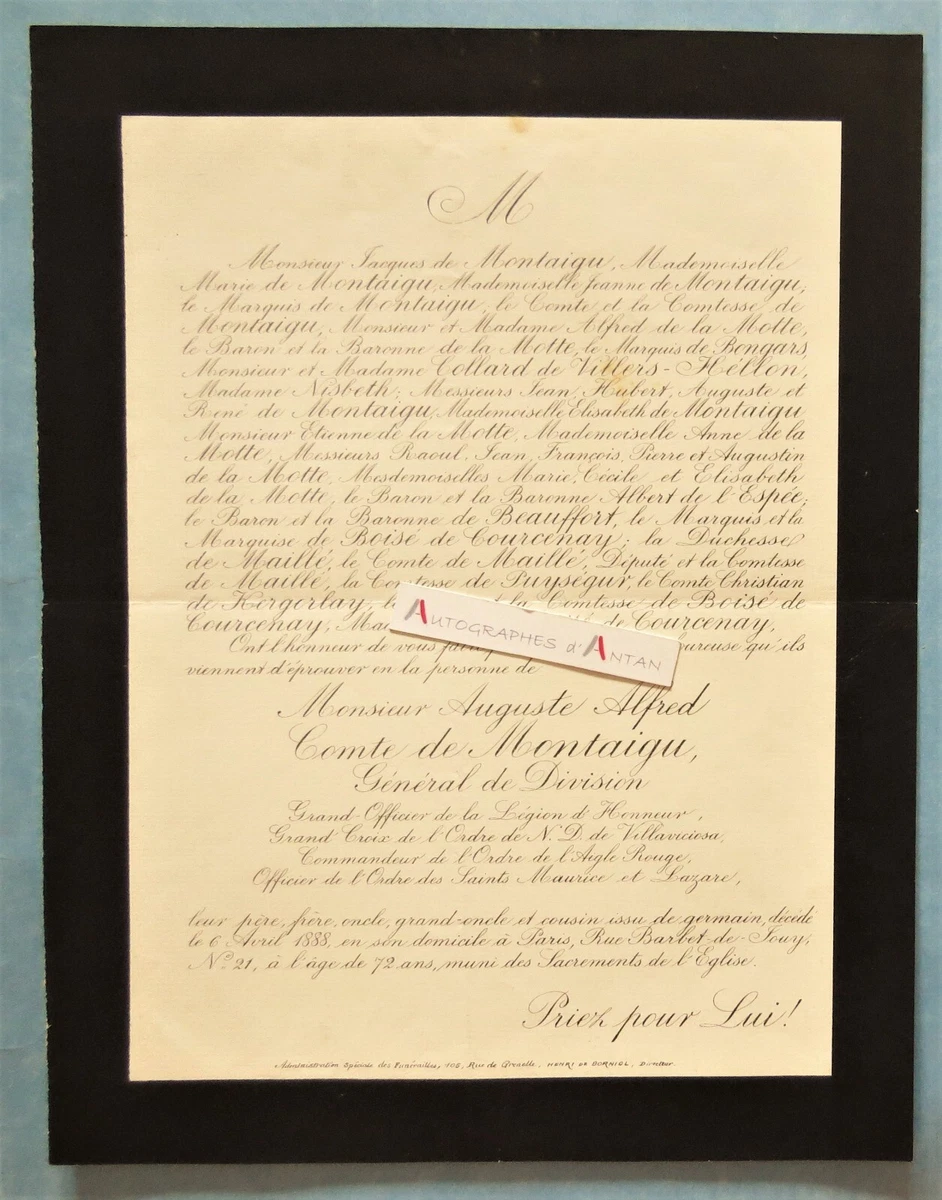 M
Monsieur Jacques de Montaigu, Mademoiselle
Marie de Montaigu, Mademoiselle Jeanne de Montaigu;
le Marquis de Montaigu, le Comte et la Comtesse de
Montaigu, Monsieur et Madame Alfred de la Motte,
le Baron et la Baronne de la Motte, le Marquis de Bongars,
Monsieur et Madame Collard de Villers-Hellon,
Madame Nisbeth; Messieurs Jean, Hubert, Auguste et
René de Montaigu, Mademoiselle Elisabeth de Montaigu,
Monsieur Etienne de la Motte, Mademoiselle Anne de la
Motte, Messieurs Raoul, Jean, François, Pierre et Augustin
de la Motte, Mesdemoiselles Marie, Cécile et Elisabeth
de la Motte, le Baron et la Baronne Albert de l'Espée;
le Baron et la Baronne de Beauffort, le Marquis et la
Marquise de Boisé de Courcenay; la Duchesse
de Maillé, le Comte de Maillé, Député et la Comtesse
de Maillé, la Comtesse de Puységur, le Comte Christian
de Kergorlay, la Comtesse de Boisé de
Courcenay, de Courcenay,
Ont l'honneur de vous qu'ils
viennent d'éprouver en la personne de
AUTOGRAPHES d'ANTAN
Monsieur Auguste Alfred
Comte de Montaigu,
Général de Division
Grand-Officier de la Légion d'Honneur,
Grand Croix de l'Ordre de N. D. de Villaviciosa,
Commandeur de l'Ordre de l'Aigle Rouge,
Officier de l'Ordre des Saints Maurice et Lazare,
leur père, frère, oncle, grand-oncle et cousin issu de germain, décédé
le 6 Avril 1888, en son domicile à Paris, Rue Barbet-de-Jouy,
No 21, à l'âge de 72 ans, muni des Sacrements de l'Eglise.
Priez pour Lui!
Administration Spéciale des Funérailles, Rue de Grenelle, HENRI DE BORNIOL, Directeur.